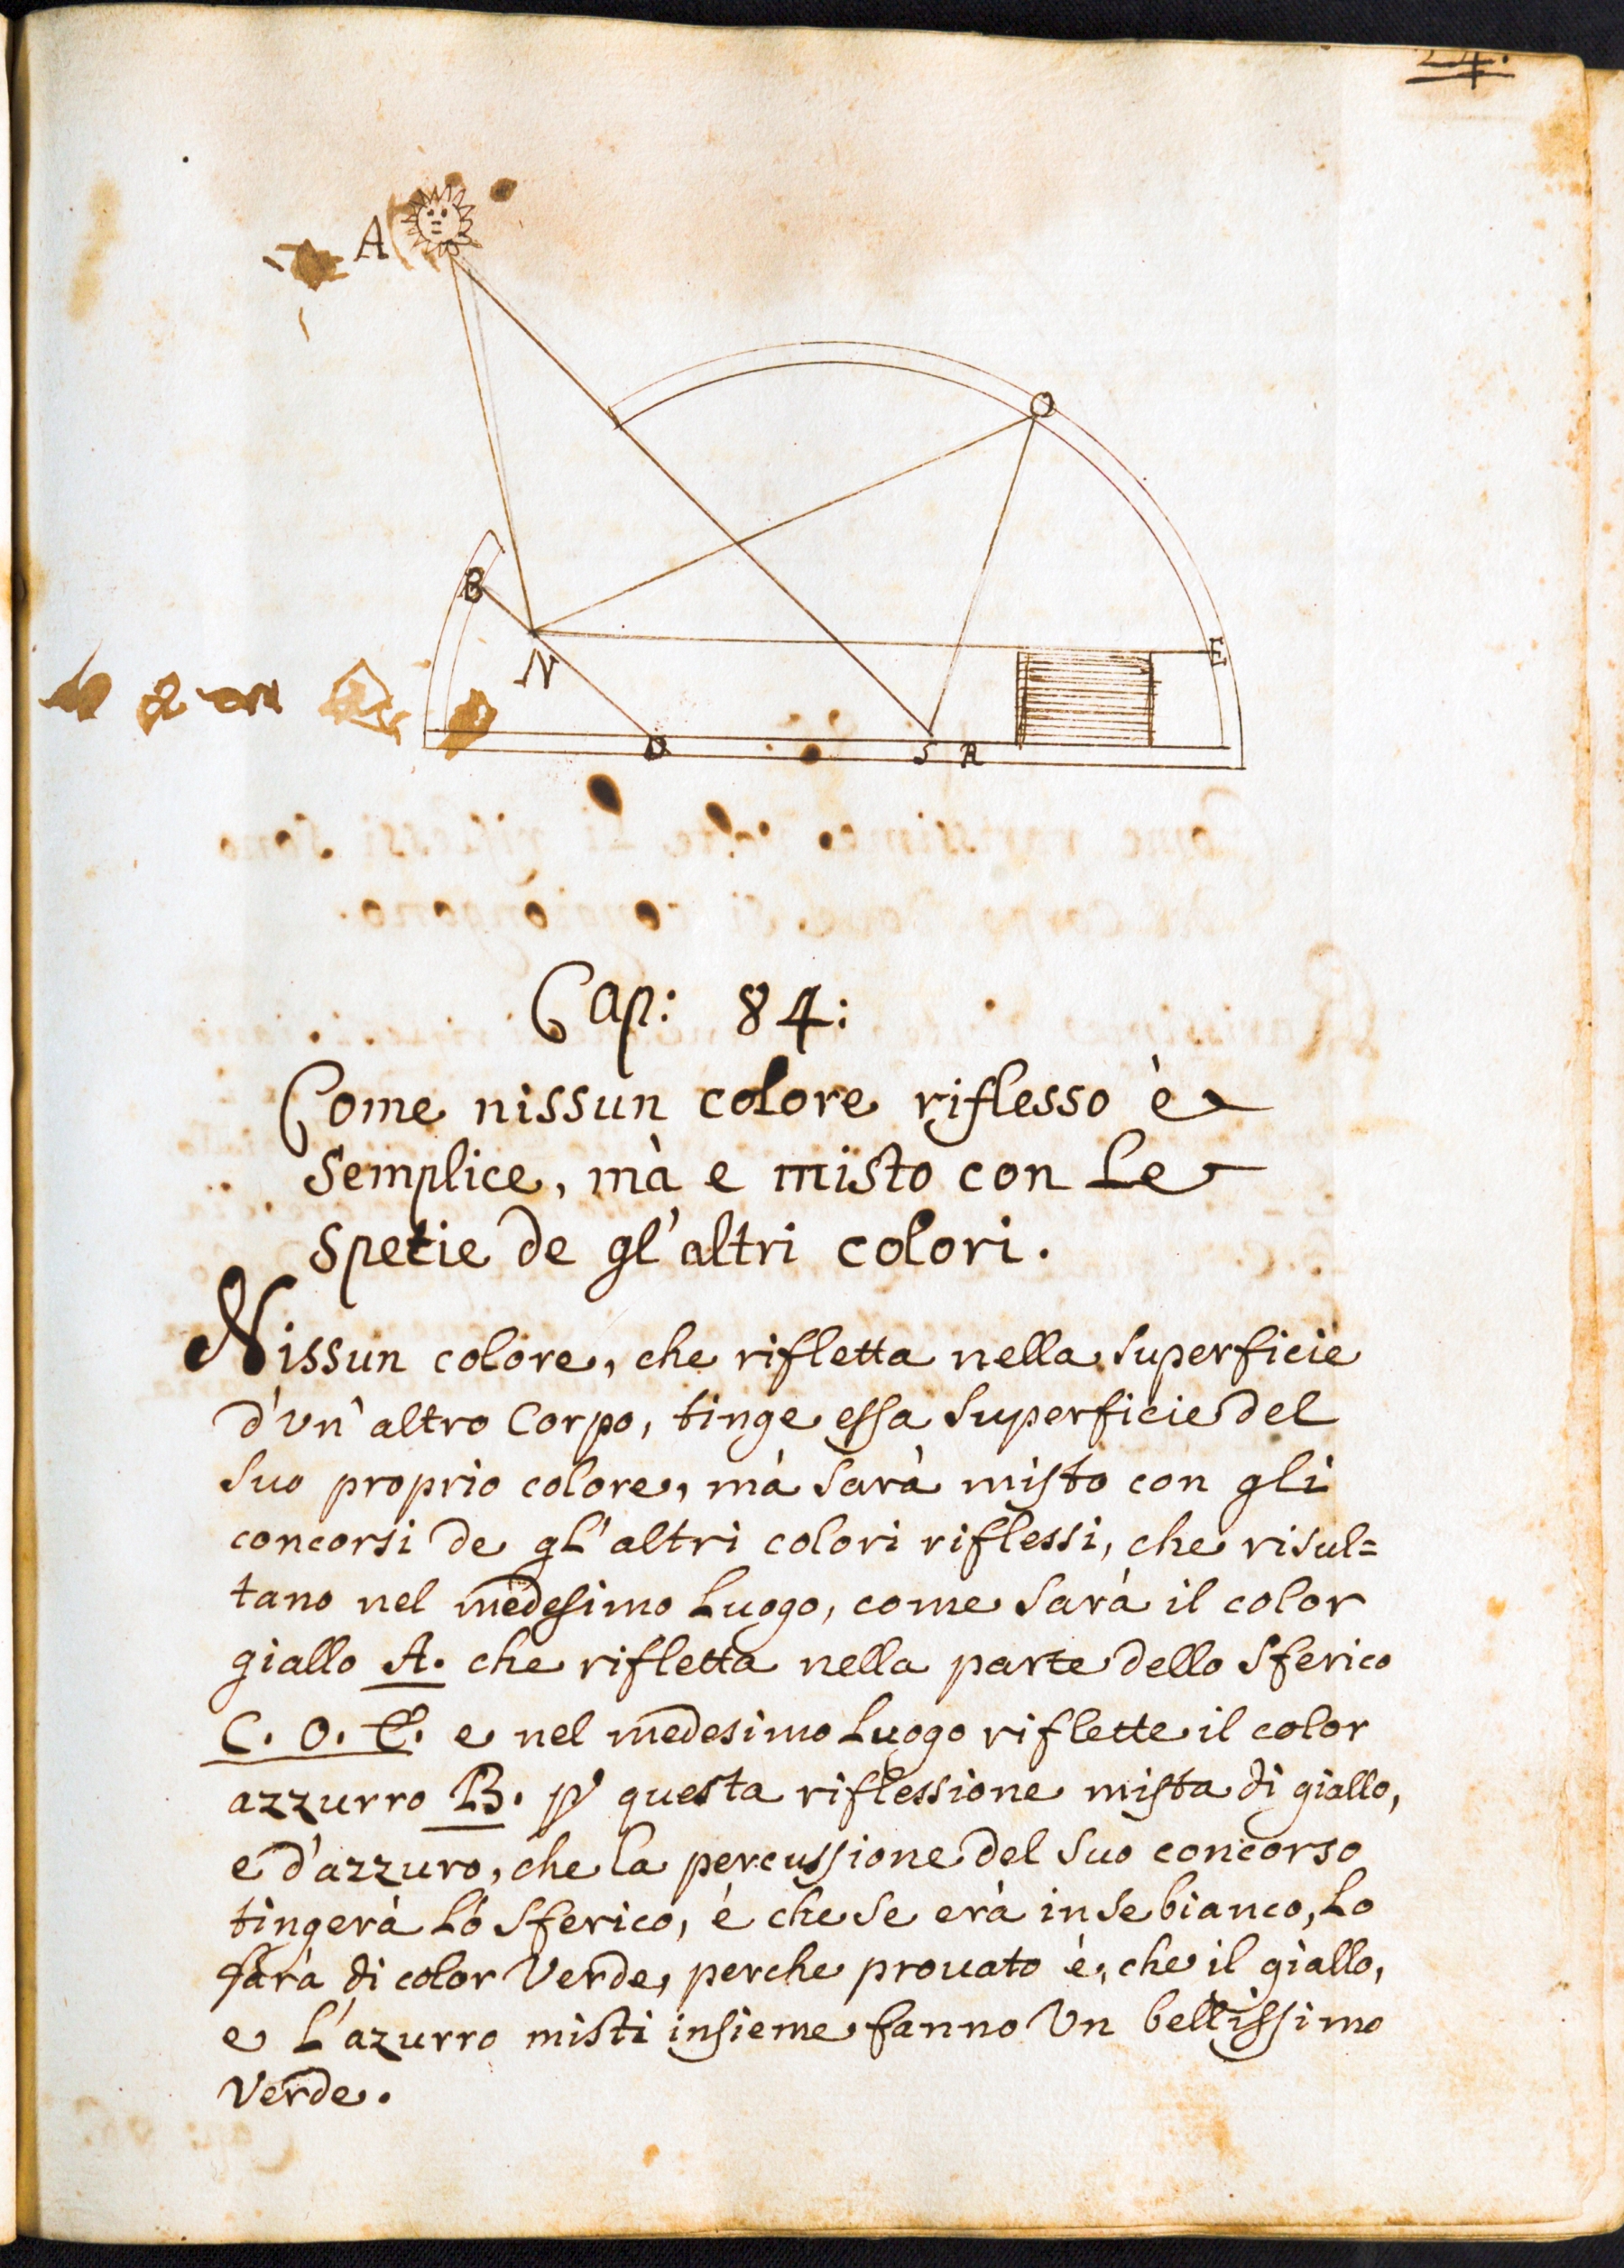 24.
A
O
B
N
E
D
S A
Cap: 84:
Come nissun colore riflesso è
semplice, mà e misto con Le
spetie de gl'altri colori.
Nissun colore, che rifletta nella superficie
d'vn' altro Corpo, tinge essa superficie del
suo proprio colore, mà sarà misto con gli
concorsi de gl'altri colori riflessi, che risul=
tano nel medesimo Luogo, come sarà il color
giallo A. che rifletta nella parte dello sferico
C. O. E. e nel medesimo Luogo riflette il color
azzurro B. p questa riflessione mista di giallo,
e d'azzuro, che la percussione del suo concorso
tingerà Lo sferico, é che se erà in se bianco, Lo
farà di color Verde, perche prouato è, che il giallo,
e L'azurro misti insieme fanno Vn bellissimo
Verde.